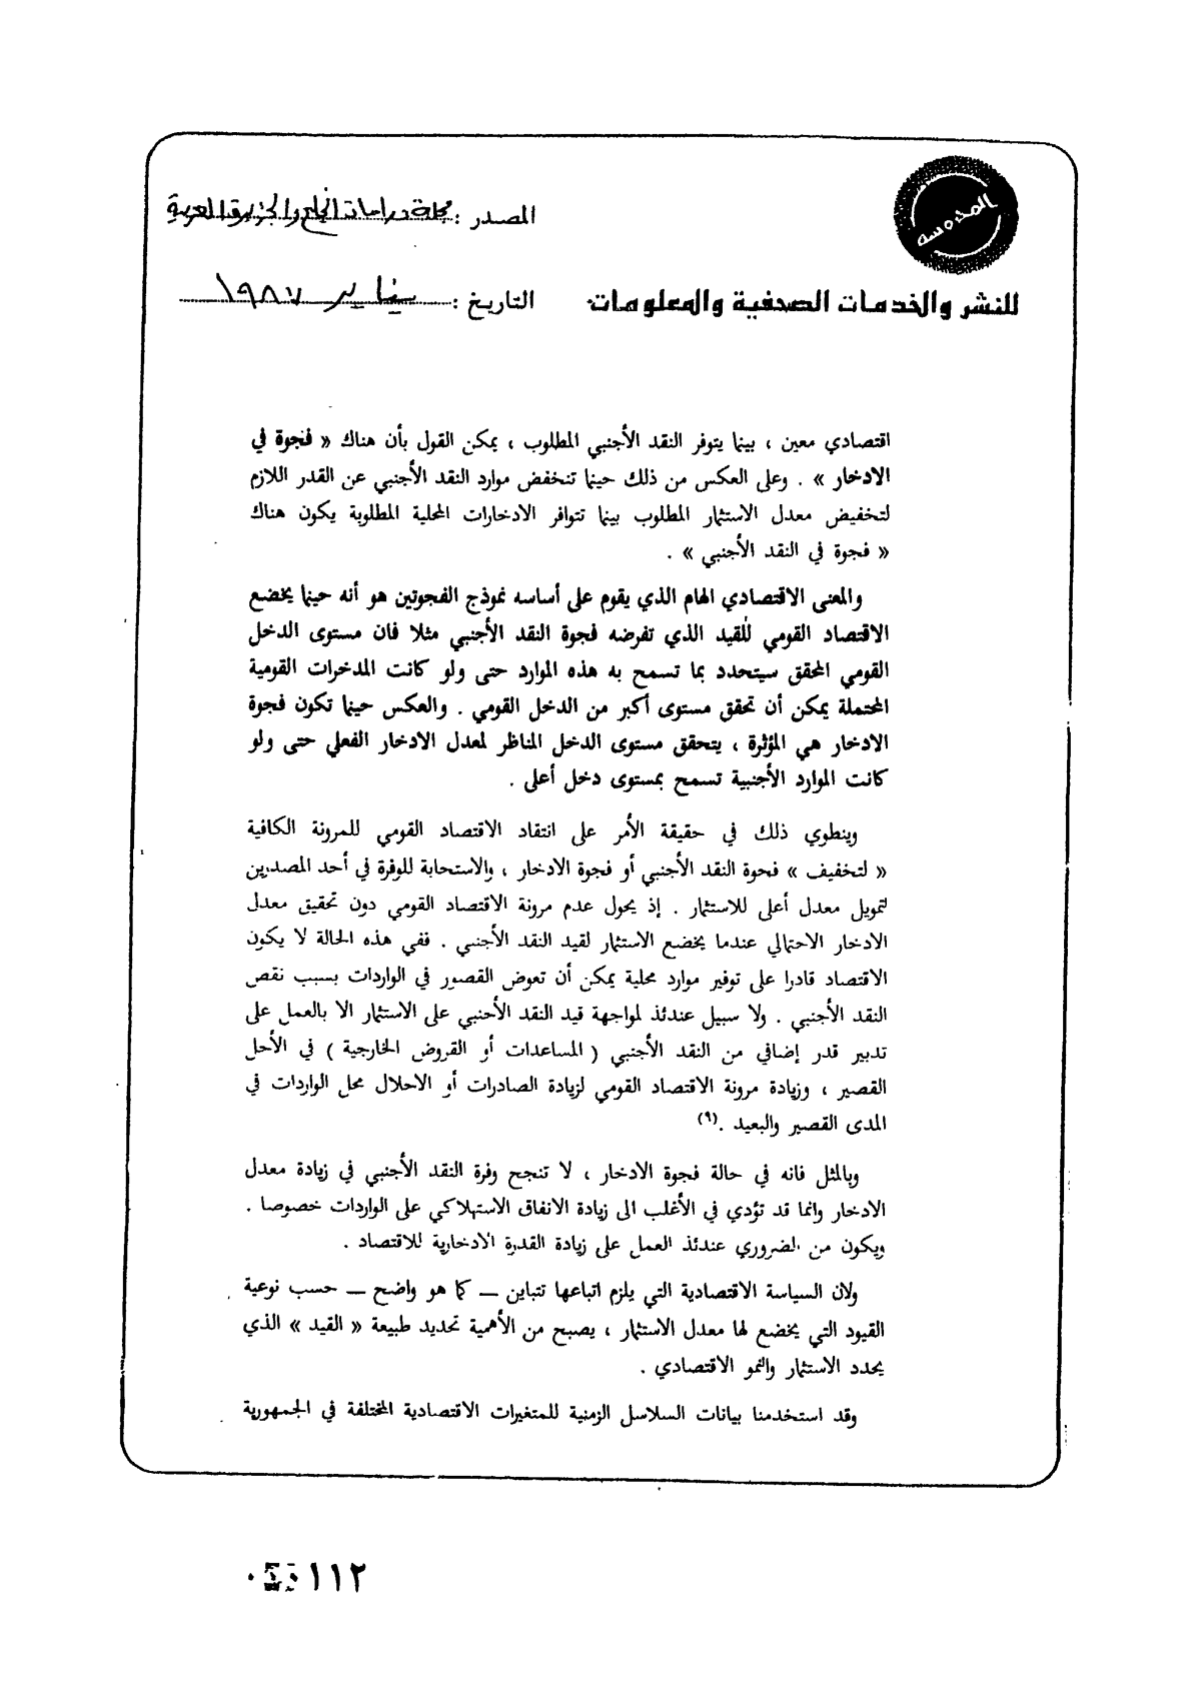 المصدر : مجلة دراسات الخليج والجزيرة العربية
المحروسه
للنشر والخدمات الصحفية والمعلومات
التاريخ : يناير ١٩٨٧
اقتصادي معين ، بينما يتوفر النقد الأجنبي المطلوب ، يمكن القول بأن هناك « فجوة في
الادخار » . وعلى العكس من ذلك حينما تنخفض موارد النقد الأجنبي عن القدر اللازم
لتخفيض معدل الاستثمار المطلوب بينما تتوافر الادخارات المحلية المطلوبة يكون هناك
« فجوة في النقد الأجنبي » .
والمعنى الاقتصادي الهام الذي يقوم على أساسه نموذج الفجوتين هو أنه حينما يخضع
الاقتصاد القومي للقيد الذي تفرضه فجوة النقد الأجنبي مثلا فان مستوى الدخل
القومي المحقق سيتحدد بما تسمح به هذه الموارد حتى ولو كانت المدخرات القومية
المحتملة يمكن أن تحقق مستوى أكبر من الدخل القومي . والعكس حينما تكون فجوة
الادخار هي المؤثرة ، يتحقق مستوى الدخل المناظر لمعدل الادخار الفعلي حتى ولو
كانت الموارد الأجنبية تسمح بمستوى دخل أعلى .
وينطوي ذلك في حقيقة الأمر على انتقاد الاقتصاد القومي للمرونة الكافية
« لتخفيف » فجوة النقد الأجنبي أو فجوة الادخار ، والاستجابة للوفرة في أحد المصدرين
لتمويل معدل أعلى للاستثمار . إذ يحول عدم مرونة الاقتصاد القومي دون تحقيق معدل
الادخار الاحتمالي عندما يخضع الاستثمار لقيد النقد الأجنبي . ففي هذه الحالة لا يكون
الاقتصاد قادرا على توفير موارد محلية يمكن أن تعوض القصور في الواردات بسبب نقص
النقد الأجنبي . ولا سبيل عندئذ لمواجهة قيد النقد الأجنبي على الاستثمار الا بالعمل على
تدبير قدر إضافي من النقد الأجنبي ( المساعدات أو القروض الخارجية ) في الأجل
القصير ، وزيادة مرونة الاقتصاد القومي لزيادة الصادرات أو الاحلال محل الواردات في
المدى القصير والبعيد .(٩)
وبالمثل فانه في حالة فجوة الادخار ، لا تنجح وفرة النقد الأجنبي في زيادة معدل
الادخار وانما قد تؤدي في الأغلب الى زيادة الانفاق الاستهلاكي على الواردات خصوصا .
ويكون من الضروري عندئذ العمل على زيادة القدرة الادخارية للاقتصاد .
ولان السياسة الاقتصادية التي يلزم اتباعها تتباين — كما هو واضح — حسب نوعية
القيود التي يخضع لها معدل الاستثمار ، يصبح من الأهمية تحديد طبيعة « القيد » الذي
يحدد الاستثمار والنمو الاقتصادي .
وقد استخدمنا بيانات السلاسل الزمنية للمتغيرات الاقتصادية المختلفة في الجمهورية
١١٢